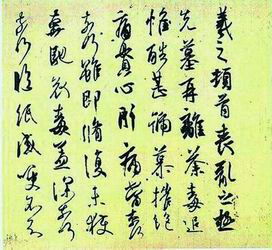 羲之頓首喪亂之極
先墓再離荼毒追
惟酷甚號慕摧絕
痛貫心肝痛當奈何
奈何雖即脩復未獲
奔馳哀毒益深奈何
奈何臨紙感哽不知